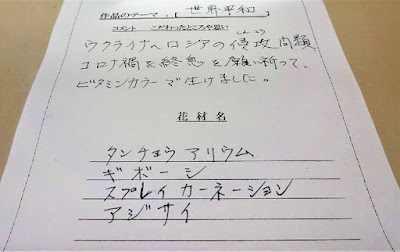 作品のテーマ:［世界平和
コメント こだわったところや思い
ウクライナへロシアの侵攻問題
コロナ禍を終息を願い祈って、
ビタミンカラーで生けました。
花材名
タンチョウアリウム
ギボーシ
スプレイカーネーション
アジサイ